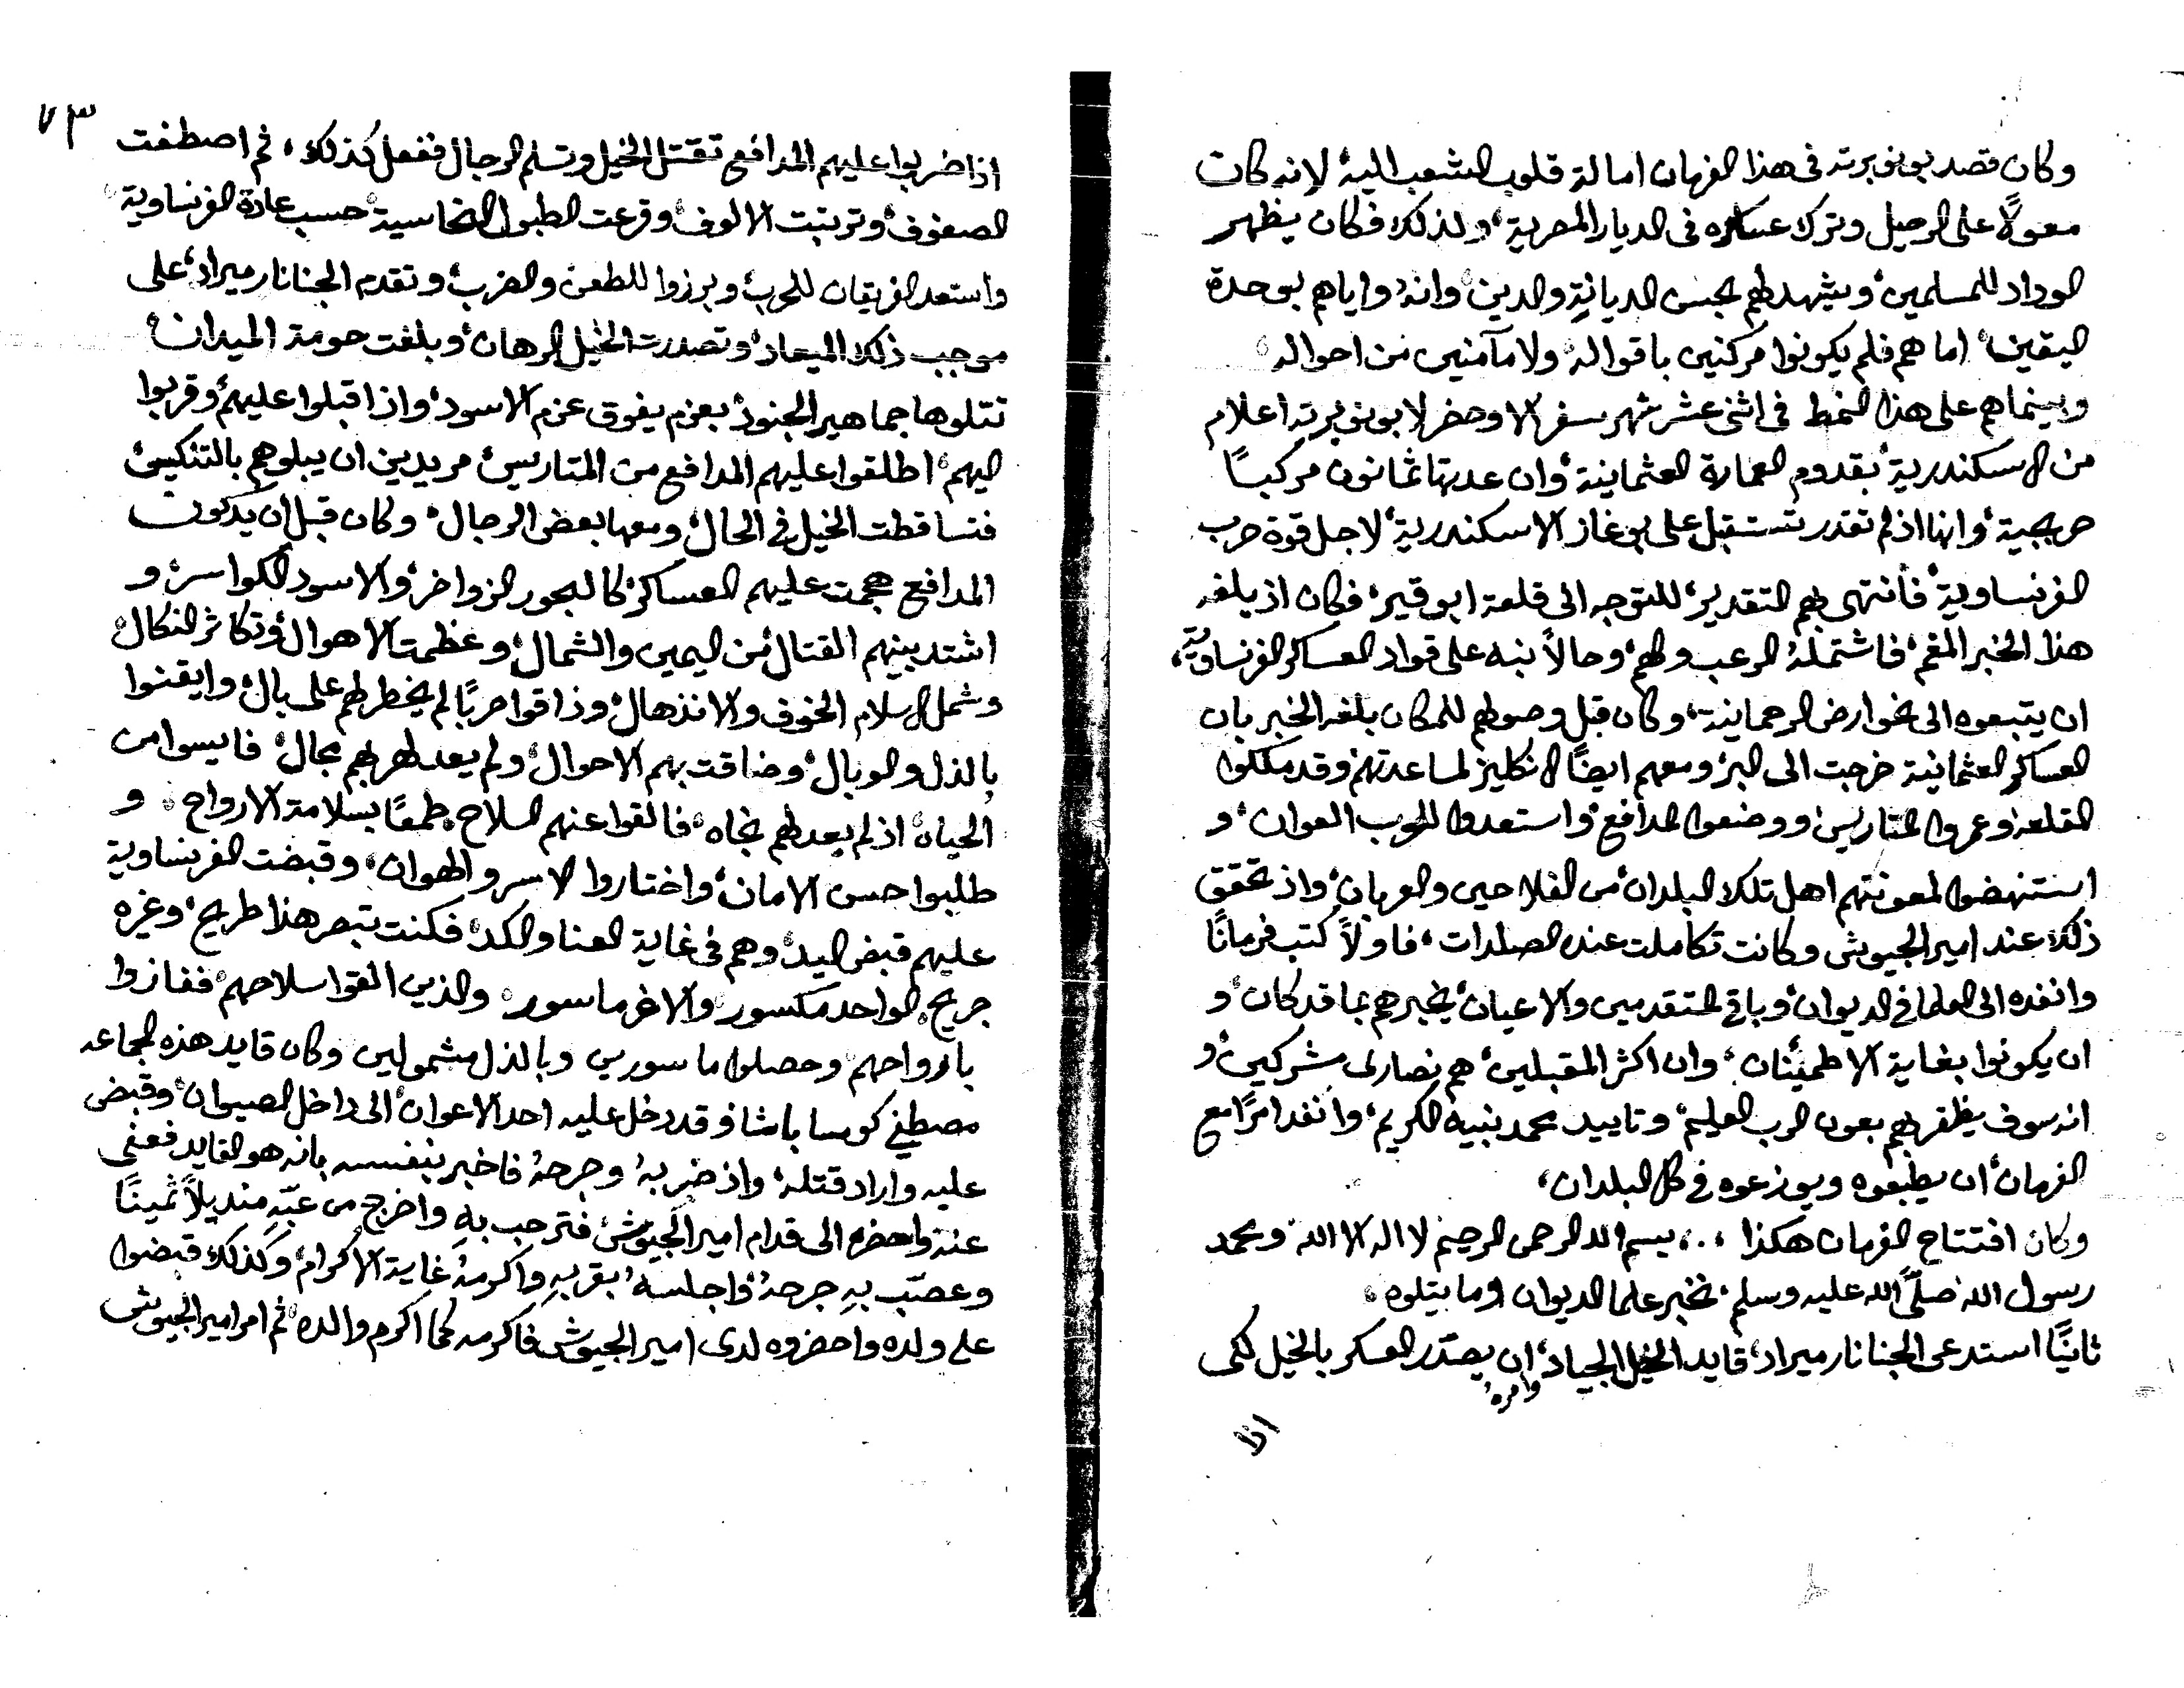 وكان قصد بونوبرته فى هذا الفرمان امالة قلوب الشعب اليه لانه كان
معولاً على الرحيل وترك عساكره فى الديار المصرية، ولذلك فكان يظهر
الوداد للمسلمين، ويشهد لهم بحسن الديانةِ والدين، وانهُ واياهم بوحدة
اليقين، اما هم فلم يكونوا مركنين باقواله، ولا مآمنين من احواله
وبينما هم على هذا النمط فى اثنى عشر شهر سفر الا وحضر لابونوبرته اعلام
من الاسكندرية، بقدوم العمارة العثمانية، وان عدتها ثمانون مركبًا
حربجية، وانها اذ لم تقدر تستقبل على بوغاز الاسكندرية، لاجل قوة حرب
الفرنساوية، فأنتهى بهم التقدير، للتوجه الى قلعة ابوقير، فكان اذ بلغه
هذا الخبر المغم، فاشتملهُ الرعب والهم، وحالاً نبه على قواد العساكر الفرنساوية،
ان يتبعوه الى نحو ارض الرحمانية، وكان قبل وصولهم للمكان بلغه الخبر بان
العساكر العثمانية خرجت الى البر، ومعهم ايضًا الانكليز لمساعدتهم وقد ملكوا
القلعه، وعمروا المتاريس، ووضعوا المدافع، واستعدوا للحرب العوان، و
استنهضوا لمعونتهم اهل تلك البلدان، من الفلاحين والعربان، واذ تحقق
ذلك عند امير الجيوش وكانت تكاملت عنده الصلدات، فاولاً كتب فرمانًا
وانفده الى العلما فى الديوان، وباقى المتقدمين والاعيان، يخبرهم بما قد كان، و
ان يكونوا بغاية الاطمئنان، وان اكثر المقبلين، هم نصارى مشركين، و
انه سوف يظفر بهم بعون الرب العليم، وتاييد محمد نبيه الكريم، وانفد امرًا مع
الفرمان، ان يطبعوه ويوزعوه فى كل البلدان،
وكان افتتاح الفرمان هكذا ،.، بسم الله الرحمن الرحيم لا اله الا الله ومحمد
رسول الله صلَّى الله عليه وسلم، نخبر علما الديوان وما يتلوه،
ثانيًا استدعى الجنانار ميراد، قايد الخيل الجياد، وامرهُ ان يصدّر العسكر بالخيل لكى
اذا
٧٣
اذا ضربوا عليهم المدافع تقتل الخيل وتسلم الرجال ففعل كذلك، ثم اصطفت
الصفوف، وترتبت الالوف، وقرعت الطبول النحاسية، حسب عادة الفرنساوية،
واستعد الفريقان للحرب، وبرزوا للطعن والضرب، وتقدم الجنانار ميراد، على
موجب ذلك الميعاد، وتصدرت الخيل الرهان، وبلغت حومة الميدان،
تتلوها جماهير الجنود، بعزم يفوق عزم الاسود، واذا قبلوا عليهم، وقربوا
اليهم، اطلقوا عليهم المدافع من المتاريس، مريدين ان يبلوهم بالتنكيس،
فتساقطت الخيل فى الحال، ومعها بعض الرجال، وكان قبل ان يدكون
المدافع هجمت عليهم العساكر، كالبحور الزواخر، والاسود الكواسر، و
اشتد بينهم القتال، من اليمين والشمال، وعظمت الاهوال، وتكاثر النكال،
وشمل الاسلام الخوف والانذهال، وذاقوا حربًا لم يخطر لهم على بال، وايقنوا
بالذل والوبال، وضاقت بهم الاحوال، ولم يعد لهربهم مجال، فايسوا من
الحياه، اذ لم يعد لهم نجاه، فالقوا عنهم السلاح، طمعًا بسلامة الارواح، و
طلبوا حسن الامان، واختاروا الاسر والهوان، وقبضت الفرنساوية
عليهم قبض اليد، وهم فى غاية العنا والكد، فكنت تبصر هذا طريح، وغيره
جريح، الواحد مكسور، والاخر ماسور، والذين القوا سلاحهم، ففازوا
بارواحهم، وحصلوا ماسورين وبالذل مشمولين وكان قايد هذه الجماعه
مصطفى كوسا باشا، وقد دخل عليه احد الاعوان، الى داخل الصيوان، وقبض
عليه واراد قتله، واذ ضربهُ وجرحهُ فاخبر بنفسه بانه هو القايد فعفى
عنه واحضره الى قدام امير الجيوش، فترحب بهِ واخرج من عبّهِ منديلاً ثمينًا
وعصّب بهِ جرحهُ، واجلسهُ بقربهِ واكرمهُ غاية الاكرام، وكذلك قبضوا
على ولده واحضروه لدى امير الجيوش فاكرمه كما اكرم والده، ثم امر امير الجيوش